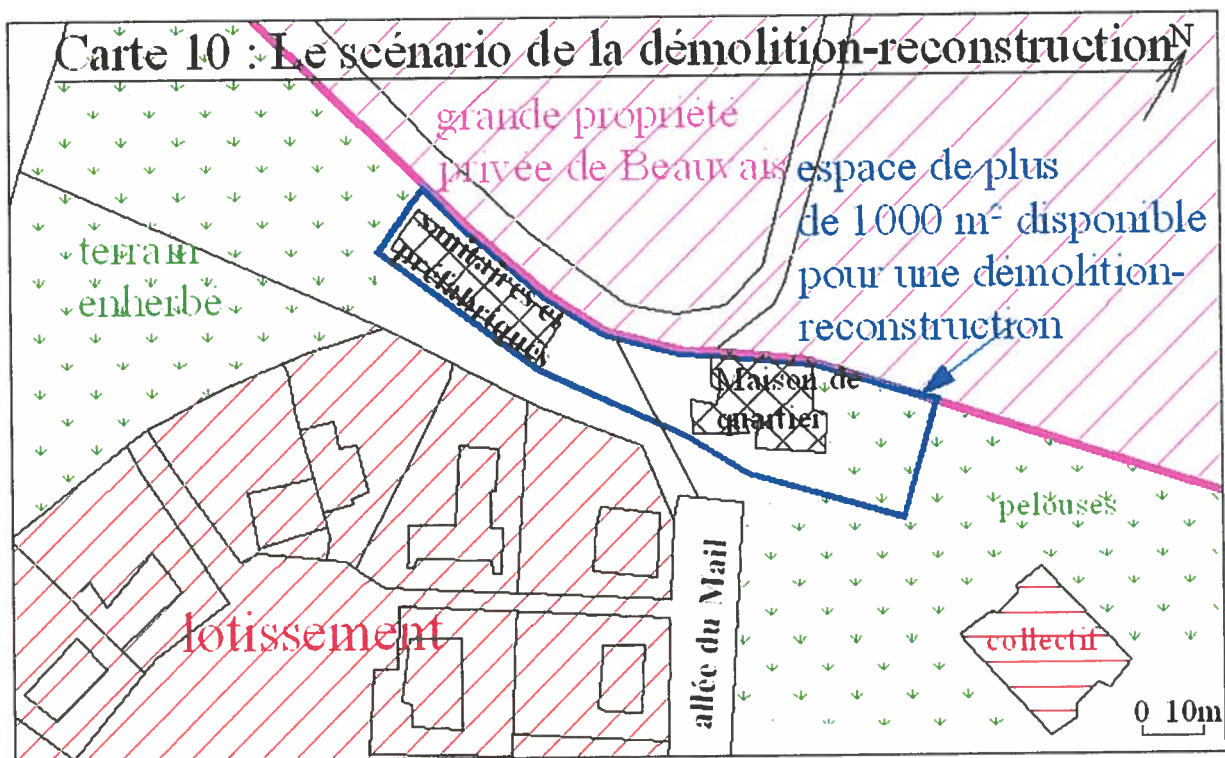 Carte 10 : Le scénario de la démolition-reconstruction
N
grande propriété
privée de Beauvais
espace de plus
de 1000 m² disponible
pour une démolition-
reconstruction
terrain
enherbé
sanitaires et
préfabriqués
Maison de
quartier
pelouses
allée du Mail
lotissement
collectif
0 10m